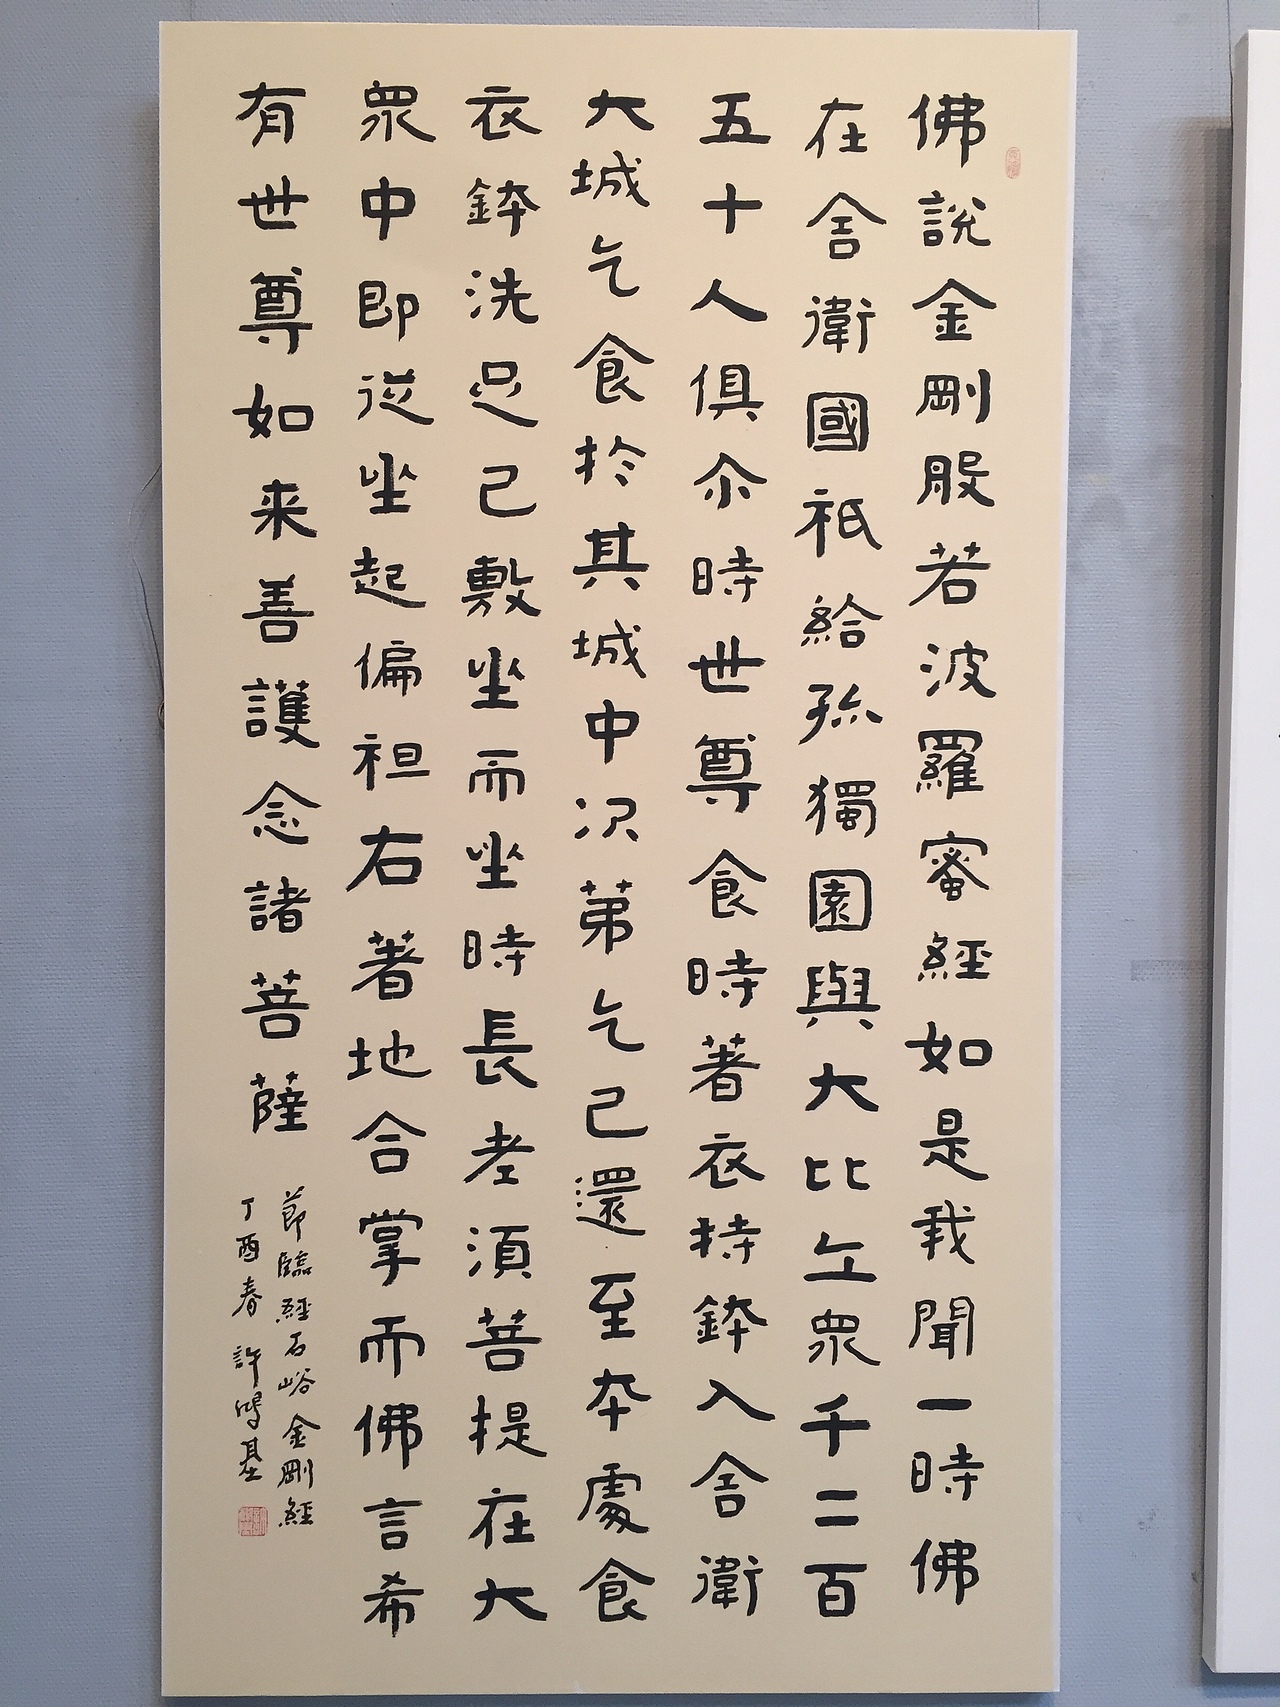 佛說金剛般若波羅蜜經如是我聞一時佛
在舍衛國祇給孤獨園與大比丘眾千二百
五十人俱尒時世尊食時著衣持鉢入舍衛
大城乞食扵其城中次苐乞已還至夲處食
衣鉢洗足已敷坐而坐時長老須菩提在大
眾中即從坐起偏袒右著地合掌而佛言希
有世尊如来善護念諸菩薩
節臨經石峪金剛經
丁酉春 許鴻基